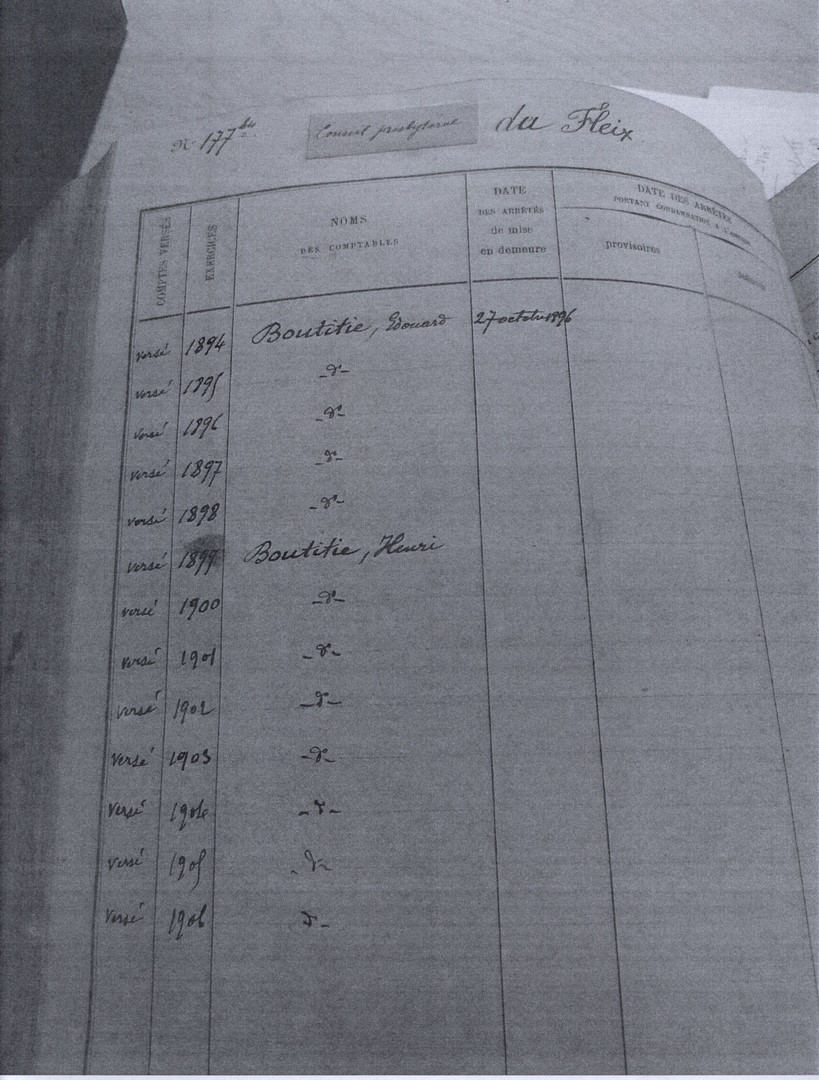 N° 177 bis Conseil presbytéral du Fleix
COMPTES VERSÉS
EXERCICES
NOMS
DES COMPTABLES
DATE
DES ARRÊTÉS
de mise
en demeure
DATE DES ARRÊTÉS
PORTANT CONDAMNATION À L'AMENDE
provisoires
versé 1894 Boutitie, Edouard 27 octobre 1896
versé 1895 -d°-
versé 1896 -d°-
versé 1897 -d°-
versé 1898 -d°-
versé 1899 Boutitie, Henri
versé 1900 -d°-
versé 1901 -d°-
versé 1902 -d°-
versé 1903 -d°-
versé 1904 -d°-
versé 1905 -d°-
versé 1906 d°-